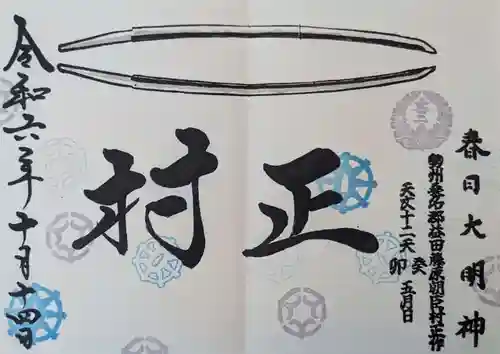 春日大明神
勢州桑名郡益田藤原朝臣村正作
天文十二天癸卯五月日
正村
令和六年十月十四日